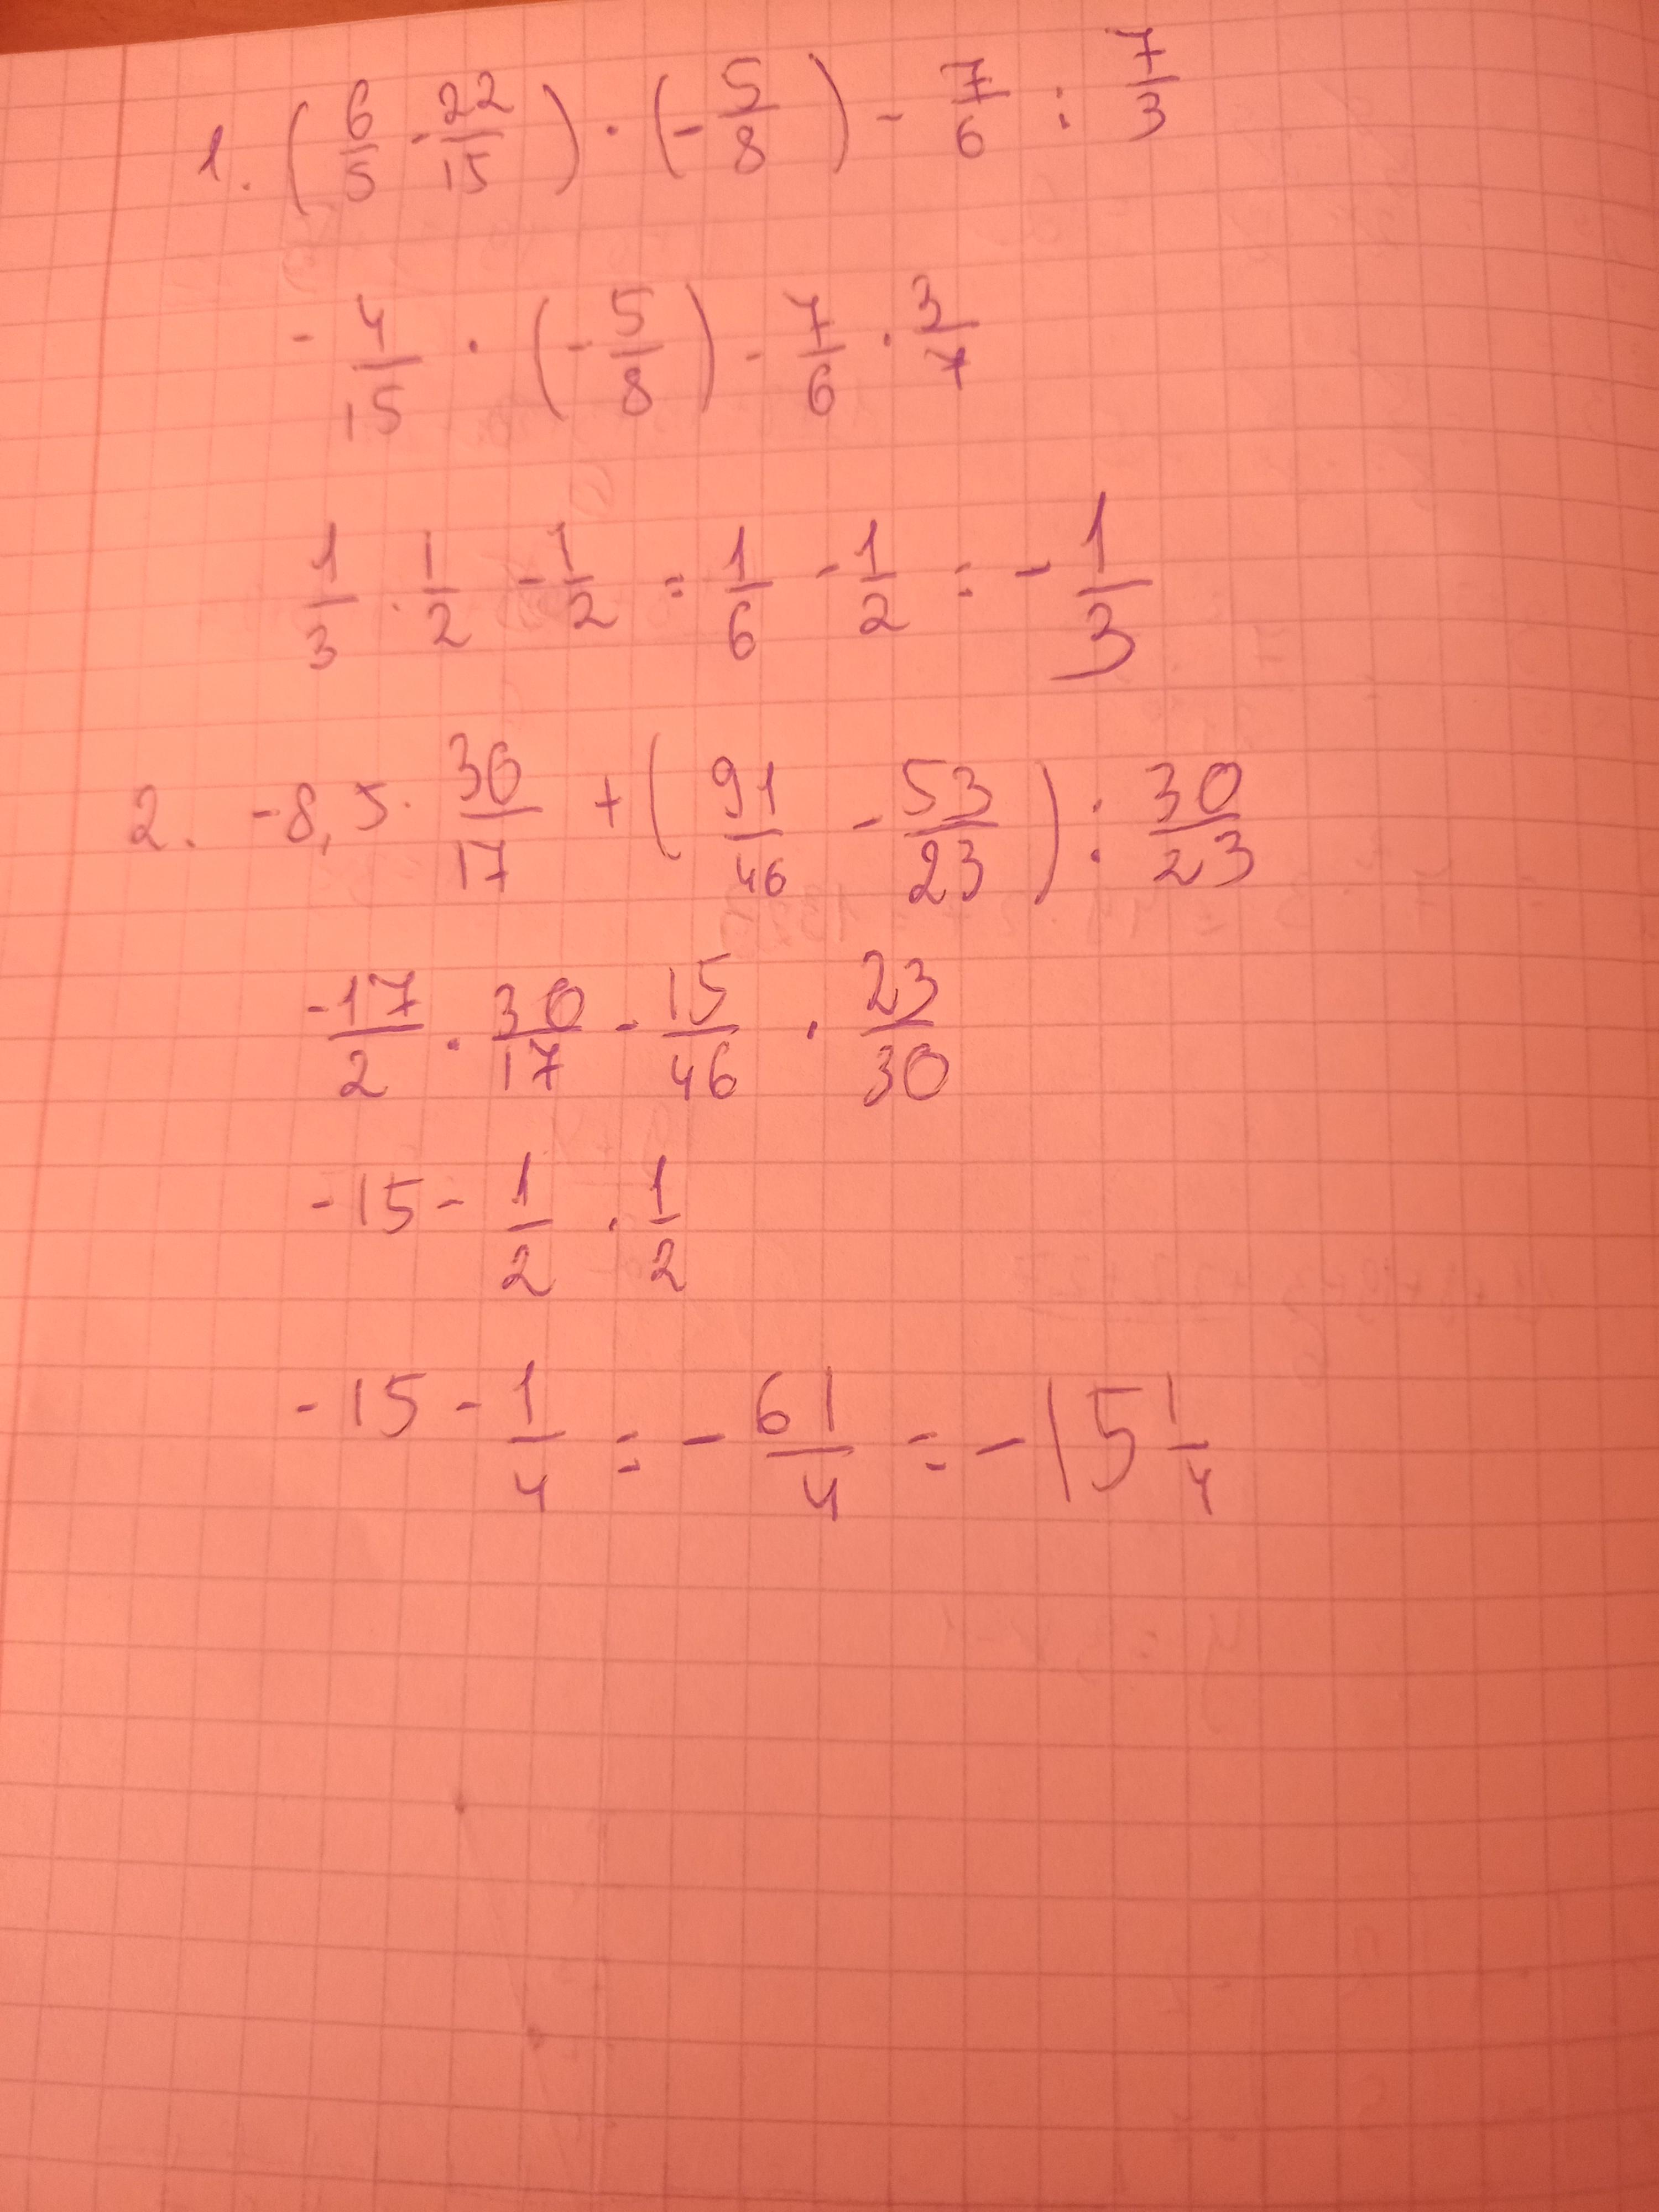 1. (6/5 - 22/15) · (-5/8) - 7/6 : 7/3
- 4/15 · (-5/8) - 7/6 · 3/7
1/3 · 1/2 - 1/2 = 1/6 - 1/2 = - 1/3
2. -8,5 · 30/17 + (91/46 - 53/23) : 30/23
-17/2 · 30/17 - 15/46 · 23/30
-15 - 1/2 · 1/2
-15 - 1/4 = - 61/4 = - 15 1/4